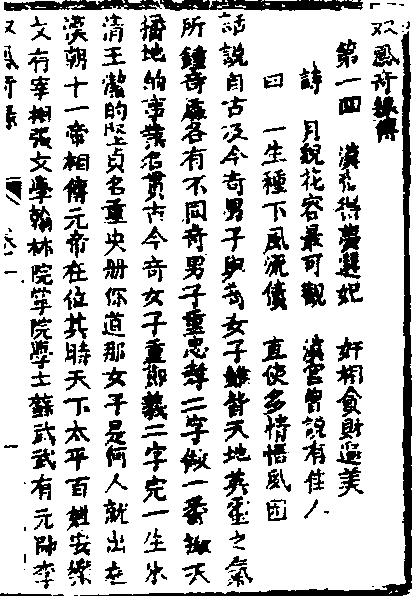 双鳳奇緣傳
第一回 漢帝得夢選妃 奸相貪財逼美
詩 月貌花容最可觀 漢宮曾說有佳人
曰 一生種下風流債 直使多情悟鳳因
話說自古及今奇男子與奇女子雖皆天地英靈之氣
所鍾奇處各有不同奇男子重忠孝二字做一番徹天
播地的事業名貫古今奇女子重節義二字完一生水
清玉潔的堅貞名重史册你道那女子是何人就出在
漢朝十一帝相傳元帝在位其時天下太平百姓安樂
文有宰相張文學翰林院掌院學士蘇武武有元帥李
双鳳奇緣 卷一 一